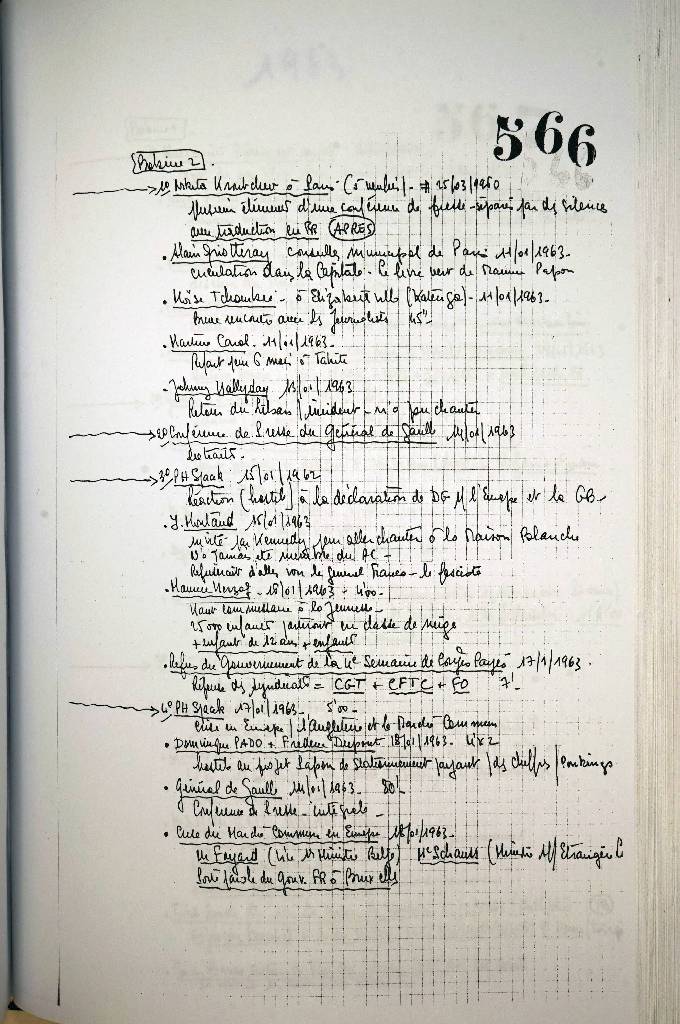 566
Bobine 2.
1° Nikita Kroutchev à Paris (à vérifier) - 25/03/1960
Plusieurs éléments d'une conférence de presse - séparés par des silences
avec traduction en FR APRES
. Alain Griotteray conseiller municipal de Paris 11/01/1963 -
circulation dans la Capitale - le livre vert de Maurice Papon
. Moïse Tchombé - à Elizabethville (Katanga) - 11/01/1963 -
Brève rencontre avec les journalistes 45"
. Martine Carol - 11/01/1963 -
Repart pour 6 mois à Tahiti
. Johnny Hallyday 13/01/1963
Retour du Liban / incident - n'a pu chanter
2° Conférence de Presse du Général de Gaulle 14/01/1963
Extraits -
3° PH Spaak 15/01/1962
Réaction (hostile) à la déclaration de DG s/ l'Europe et la GB -
. Y. Montand 15/01/1963
invité par Kennedy pour aller chanter à la Maison Blanche
N'a jamais été membre du PC -
Refuserait d'aller voir le général Franco - le fasciste
. Maurice Herzog - 15/01/1963 - 4'00 -
Haut commissaire à la Jeunesse -
25000 enfants partiront en classe de neige
+ enfant de 12 ans + enfants
. Refus du Gouvernement de la 4e Semaine de Congés Payés 17/1/1963 .
Réponse des syndicats = CGT + CFTC + FO 7'
4° PH Spaak 17/01/1963 - 5'00 -
crise en Europe / l'Angleterre et le Marché Commun
. Dominique PADO + Frédéric Dupont 18/01/1963 - 4' x 2
hostiles au projet Papon de Stationnement payant / des chiffres / Parkings
. Général de Gaulle 14/01/1963 - 80' -
Conférence de Presse - intégrale -
. Crise du Marché Commun en Europe 18/01/1963 -
Mr Fayard (Vice 1er Ministre Belge) Mr Schauss (Ministre Aff/Etrangères
Porte parole du Gouv. FR à Bruxelles